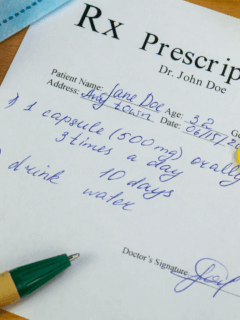 Rx Prescrip
Dr. John Doe
Patient Name: Jane Doe Age: 32 Ge
Address: Anytown Date: 06/15/2
1) 1 capsule (500 mg) orally
3 times a day
10 days
drink
water
Doctor's Signature: